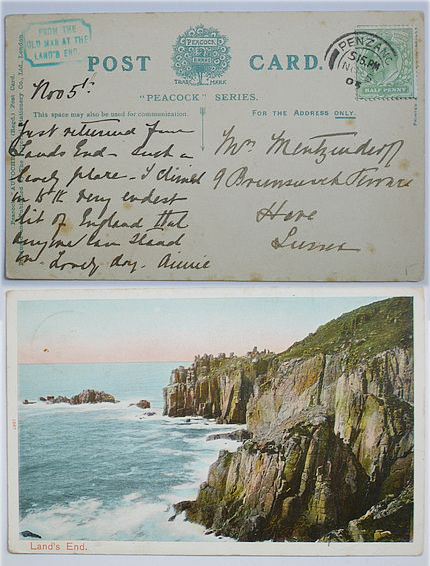 FROM THE
OLD MAN AT THE
LAND'S END
POST CARD.
PEACOCK
TRADE MARK
"PEACOCK" SERIES.
This space may also be used for communication.
FOR THE ADDRESS ONLY.
PENZANCE
5 15 PM
HALF PENNY
Nov 5th
Just returned from
Lands End - Such a
lovely place - I climed
to the very endest
bit of England that
anyone can stand
on. Lovely day. Annie
Mrs Mentzendorff
9 Brunswick Terrace
Hove
Sussex
Land's End.